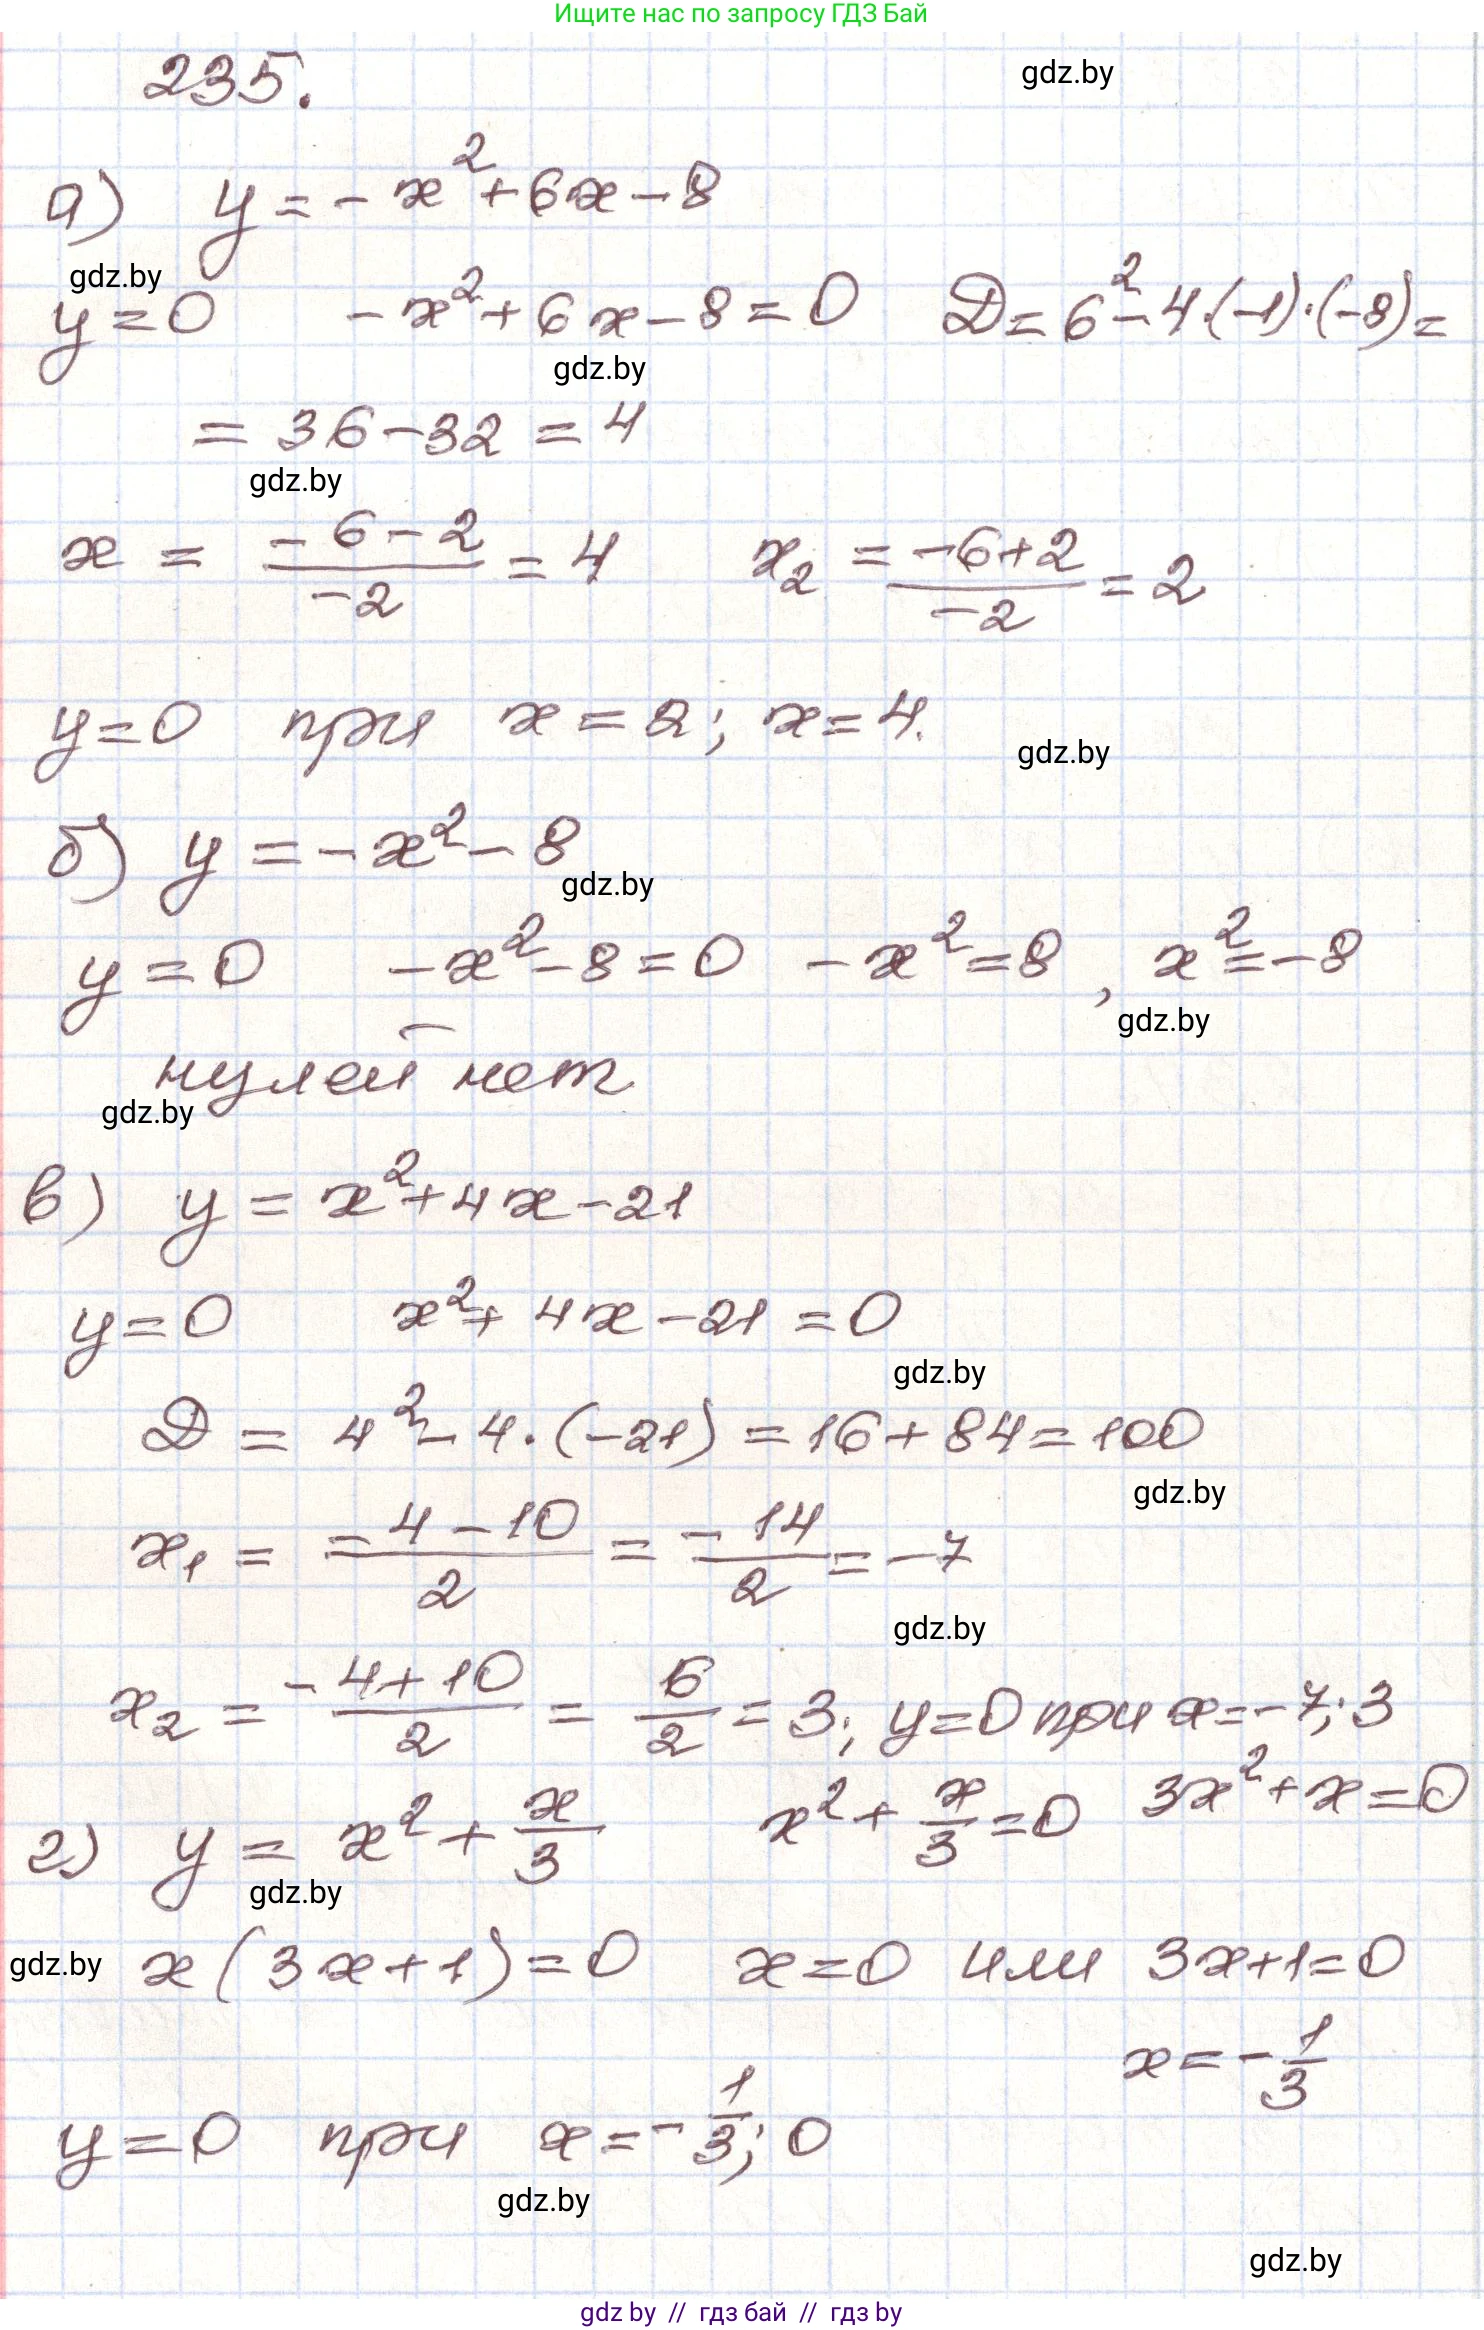 Ищите нас по запросу ГДЗ Бай
235.
gdz.by
а) y = -x² + 6x - 8
gdz.by
y = 0   -x² + 6x - 8 = 0   D = 6² - 4·(-1)·(-8) =
gdz.by
= 36 - 32 = 4
gdz.by
x = (-6-2)/(-2) = 4   x₂ = (-6+2)/(-2) = 2
y = 0 при x = 2; x = 4.
gdz.by
б) y = -x² - 8
gdz.by
y = 0   -x² - 8 = 0   -x² = 8, x² = -8
gdz.by
нулей нет
gdz.by
в) y = x² + 4x - 21
y = 0   x² + 4x - 21 = 0
gdz.by
D = 4² - 4·(-21) = 16 + 84 = 100
gdz.by
x₁ = (-4-10)/2 = -14/2 = -7
gdz.by
x₂ = (-4+10)/2 = 6/2 = 3; y = 0 при x = -7; 3
г) y = x² + x/3   x² + x/3 = 0   3x² + x = 0
gdz.by
gdz.by x(3x+1) = 0   x = 0 или 3x+1 = 0
x = -1/3
y = 0 при x = -1/3; 0
gdz.by
gdz.by
gdz by // гдз бай // гдз by